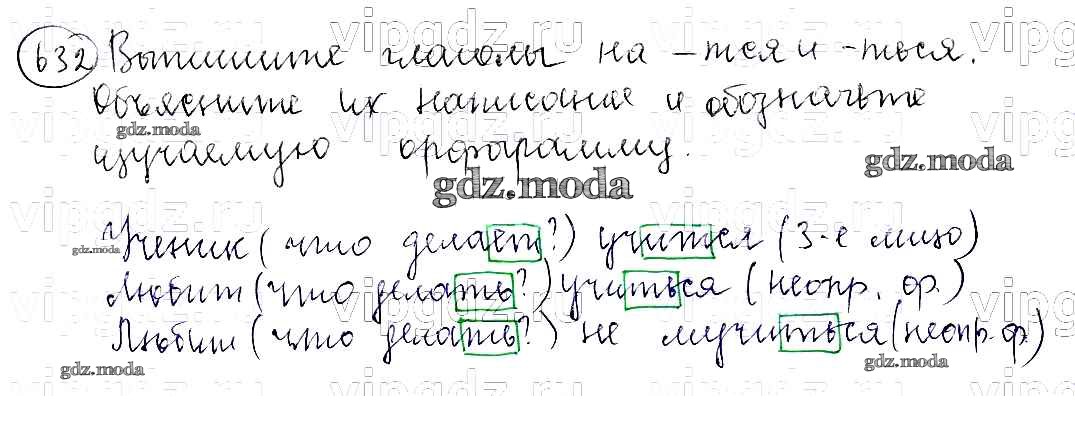 632 Выпишите глаголы на -тся и -ться.
Объясните их написание и обозначьте
gdz.moda
изучаемую орфограмму.
gdz.moda
gdz.moda
Ученик (что делает?) учится (3-е лицо)
gdz.moda
Любит (что делать?) учиться (неопр. ф.)
gdz.moda
Любит (что делать?) не мучиться (неопр. ф.)
gdz.moda
gdz.moda
vipgdz.ru